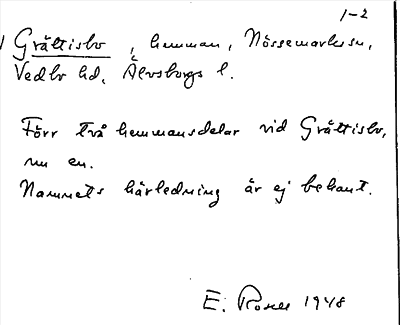 1-2
Gråttisbo, hemman, Nössemarks sn,
Vedbo hd, Älvsborgs l.
Förr två hemmansdelar vid Gråttisbo,
nu en.
Namnets härledning är ej bekant.
E. Rosell 1948